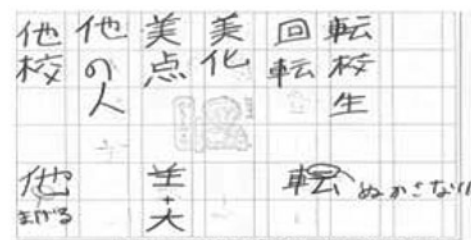 転校生
回転
美化
美点
他の人
他校
転 ぬかさない
𦍌+大
他 まげる